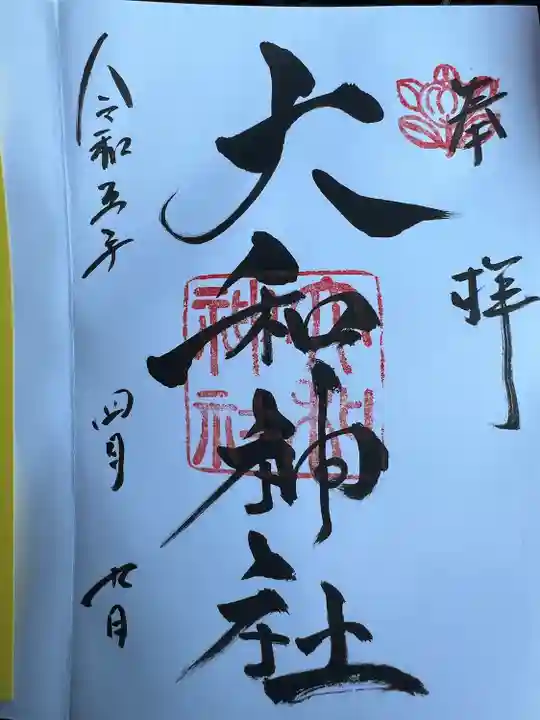 奉拝
大和神社
令和五年 四月 九日
大和神社